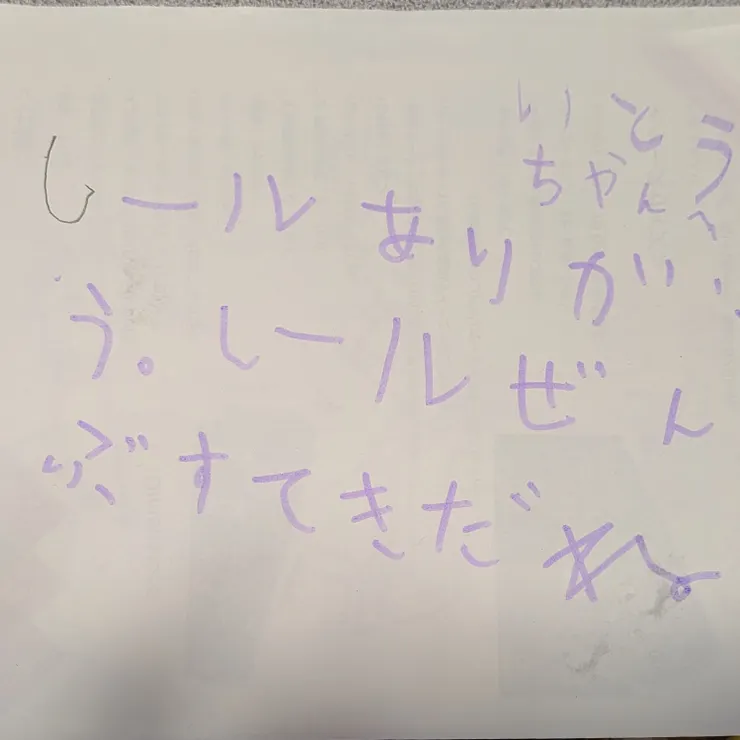 いとう
ちゃんへ
レールありがと
う。レールぜん
ぶすてきだね。